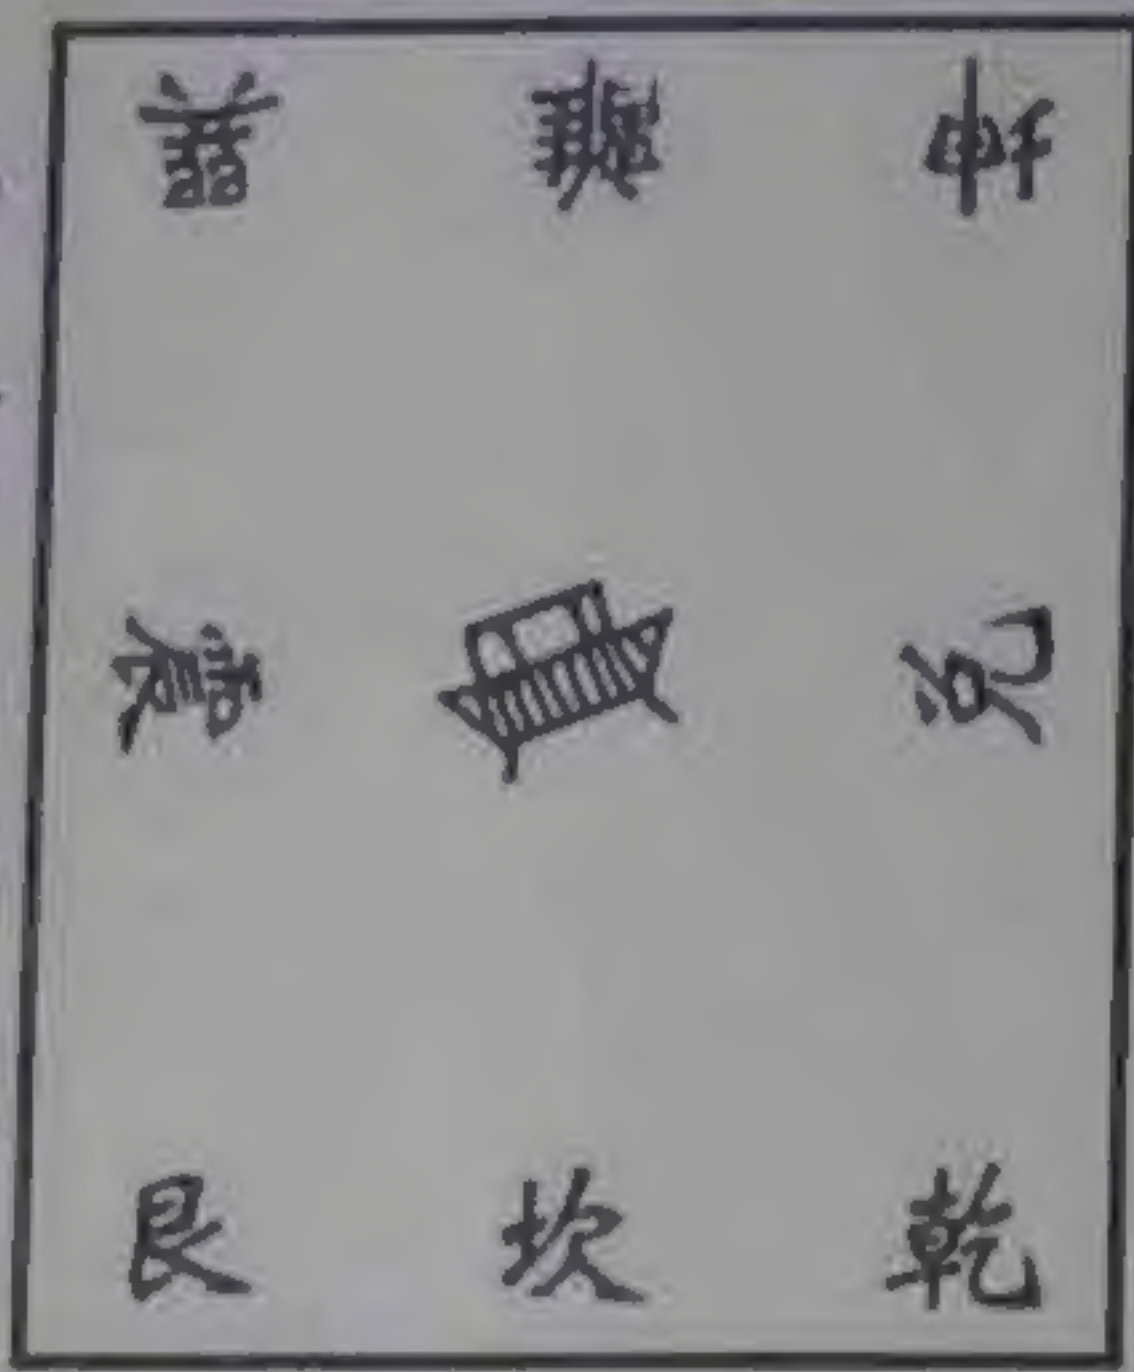 巽 離 坤
震 兌
艮 坎 乾